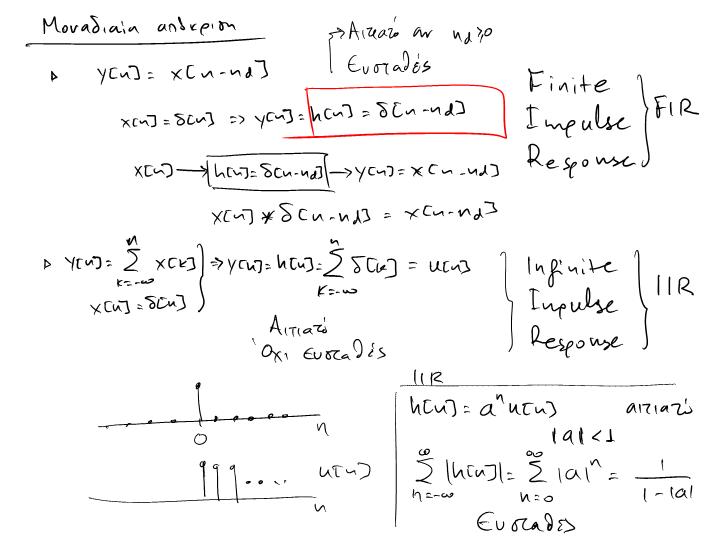 Μοναδιαία απόκριση
→ Αιτιατό αν n_d ≥ 0
Ευσταθές
▷ y[n] = x[n-n_d]
x[n] = δ[n] ⇒ y[n] = h[n] = δ[n-n_d]
Finite
Impulse
Response
FIR
x[n] → h[n] = δ[n-n_d] → y[n] = x[n-n_d]
x[n] * δ[n-n_d] = x[n-n_d]
▷ y[n] = Σ_{k=-∞}^{n} x[k] ⇒ y[n] = h[n] = Σ_{k=-∞}^{n} δ[k] = u[n]
x[n] = δ[n]
Infinite
Impulse
Response
IIR
Αιτιατό
Όχι ευσταθές
0
n
u[n]
n
IIR
h[n] = a^n u[n] αιτιατό
|a| < 1
Σ_{n=-∞}^{∞} |h[n]| = Σ_{n=0}^{∞} |a|^n = 1/(1-|a|)
Ευσταθές